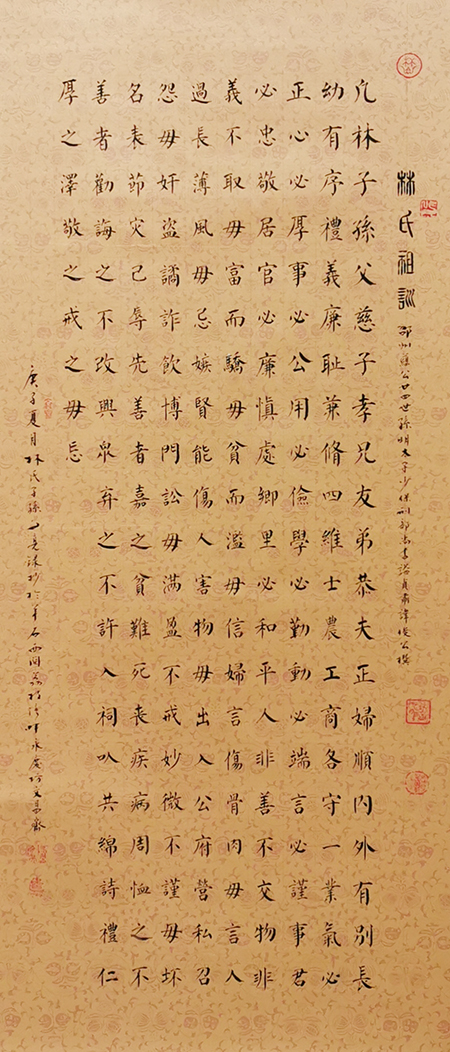 林氏祖訓 邵州公廿四世孫明太子少保刑部尚書諡貞肅諱俊公撰
凡林子孫父慈子孝兄友弟恭夫正婦順內外有別長
幼有序禮義廉恥兼脩四維士農工商各守一業氣必
正心必厚事必公用必儉學必勤動必端言必謹事君
必忠敬居官必廉慎處鄉里必和平人非善不交物非
義不取毋富而驕毋貧而濫毋信婦言傷骨肉毋言人
過長薄風毋忌嫉賢能傷人害物毋出入公府營私召
怨毋奸盜譎詐飲博門訟毋滿盈不戒妙微不謹毋坏
名喪節灾己辱先善者嘉之貧難死喪疾病周恤之不
善者勸誨之不改興眾弃之不許入祠以共綿詩禮仁
厚之澤敬之戒之毋忘
庚子夏月林氏子孫